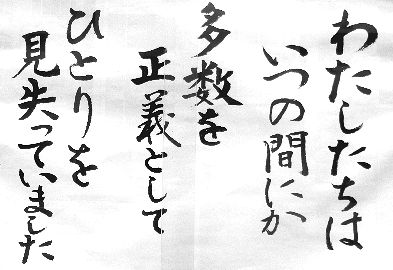 わたしたちは
いつの間にか
多数を
正義として
ひとりを
見失っていました